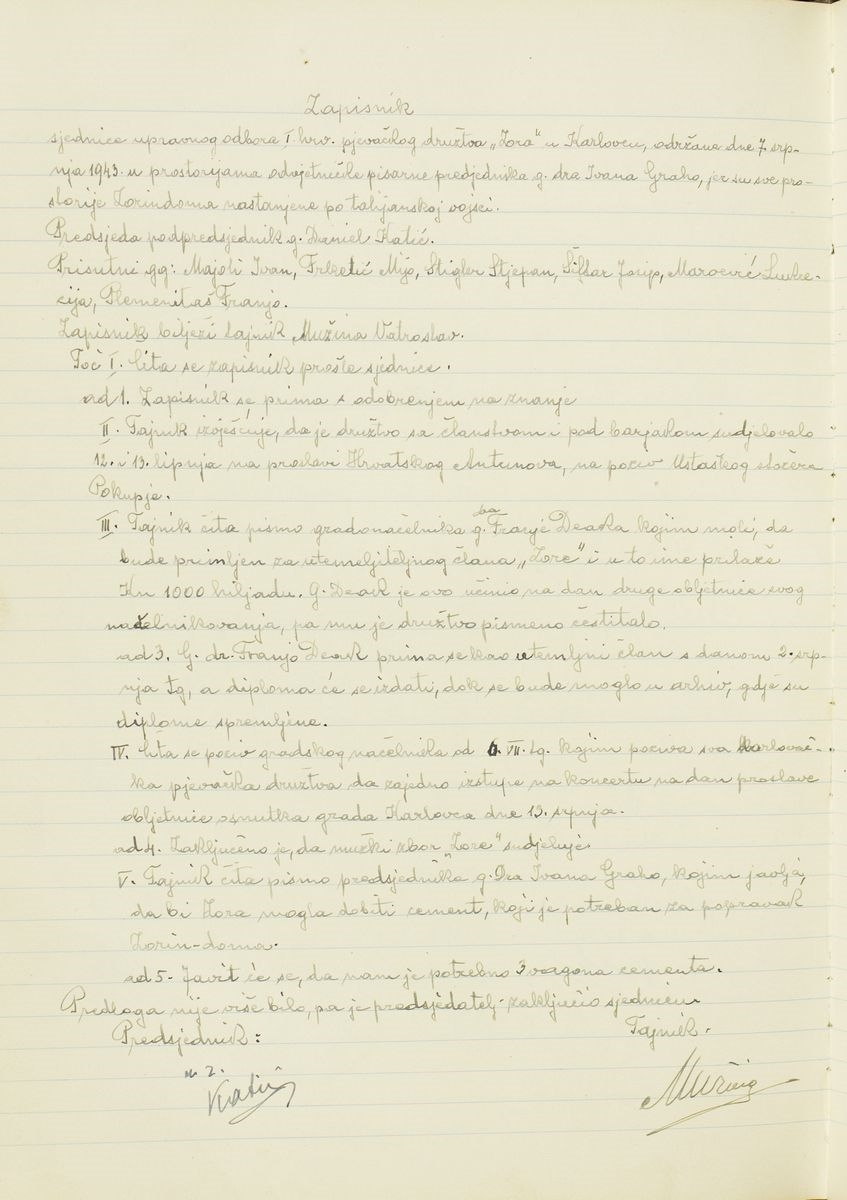 Zapisnik
sjednice upravnog odbora I hrv. pjevačkog družtva „Zora" u Karlovcu, održane dne 7. srp-
nja 1943. u prostorijama odvjetničke pisarne predjednika g. dra Ivana Graho, jer su sve pro-
storije Zorindoma nastanjene po talijanskoj vojsci.
Predsjeda podpredsjednik g. Daniel Katić.
Prisutni gg: Majoli Ivan, Frketić Mijo, Stigler Stjepan, Šiftar Josip, Marocvić Lukre-
cija, Plemenitaš Franjo.
Zapisnik bilježi tajnik Mužina Vatroslav.
Toč I. Čita se zapisnik prošle sjednice.
ad 1. Zapisnik se prima s odobrenjem na znanje
II. Tajnik izvješćuje, da je družtvo sa članstvom i pod barjakom sudjelovalo
12. i 13. lipnja na proslavi Hrvatskog Antunova, na poziv Ustaškog stožera
Pokupje.
III. Tajnik čita pismo gradonačelnika g. Franje Deaka kojim moli, da
bude primljen za utemeljiteljnog člana „Zore" i u to ime prilaže
Kn 1000 hiljadu. G. Deak je ovo učinio na dan druge obljetnice svog
načelnikovanja, pa mu je družtvo pismeno čestitalo.
ad 3. G. dr. Franjo Deak prima se kao utemljni član s danom 2. srp-
nja tg, a diploma će se izdati, dok se bude moglo u arhiv, gdje su
diplome spremljene.
IV. Čita se poziv gradskog načelnika od 6. VII. tg. kojim poziva sva karlovač-
ka pjevačka družtva da zajedno iztupe na koncertu na dan proslave
obljetnice osnutka grada Karlovca dne 13. srpnja.
ad 4. Zaključeno je, da mužki zbor „Zore" sudjeluje.
V. Tajnik čita pismo predsjednika g. Dra Ivana Graho, kojim javlja,
da bi Zora mogla dobiti cement, koji je potreban za popravak
Zorin-doma.
ad 5- Javit će se, da nam je potrebno 3 vagona cementa.
Predloga nije više bilo, pa je predsjedatelj zaključio sjednicu
Predsjednik: Tajnik.
Katić Mužina